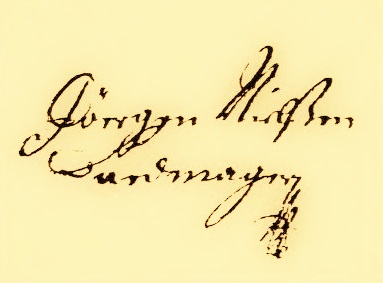 Jörgen Nielßen
Sandmager